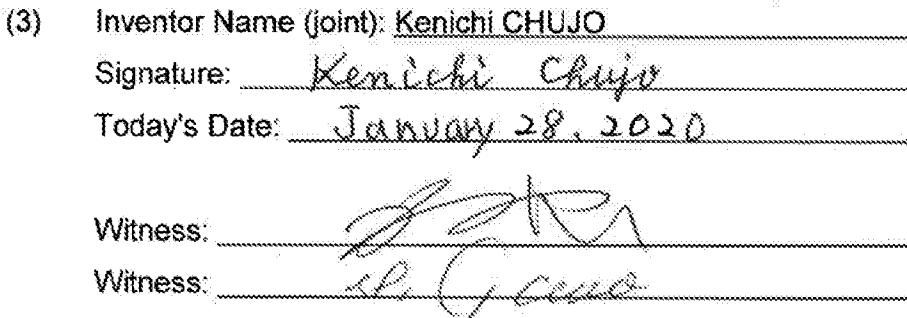 (3) Inventor Name (joint): Kenichi CHUJO
Signature: Kenichi Chujo
Today's Date: January 28, 2020
Witness:
Witness: